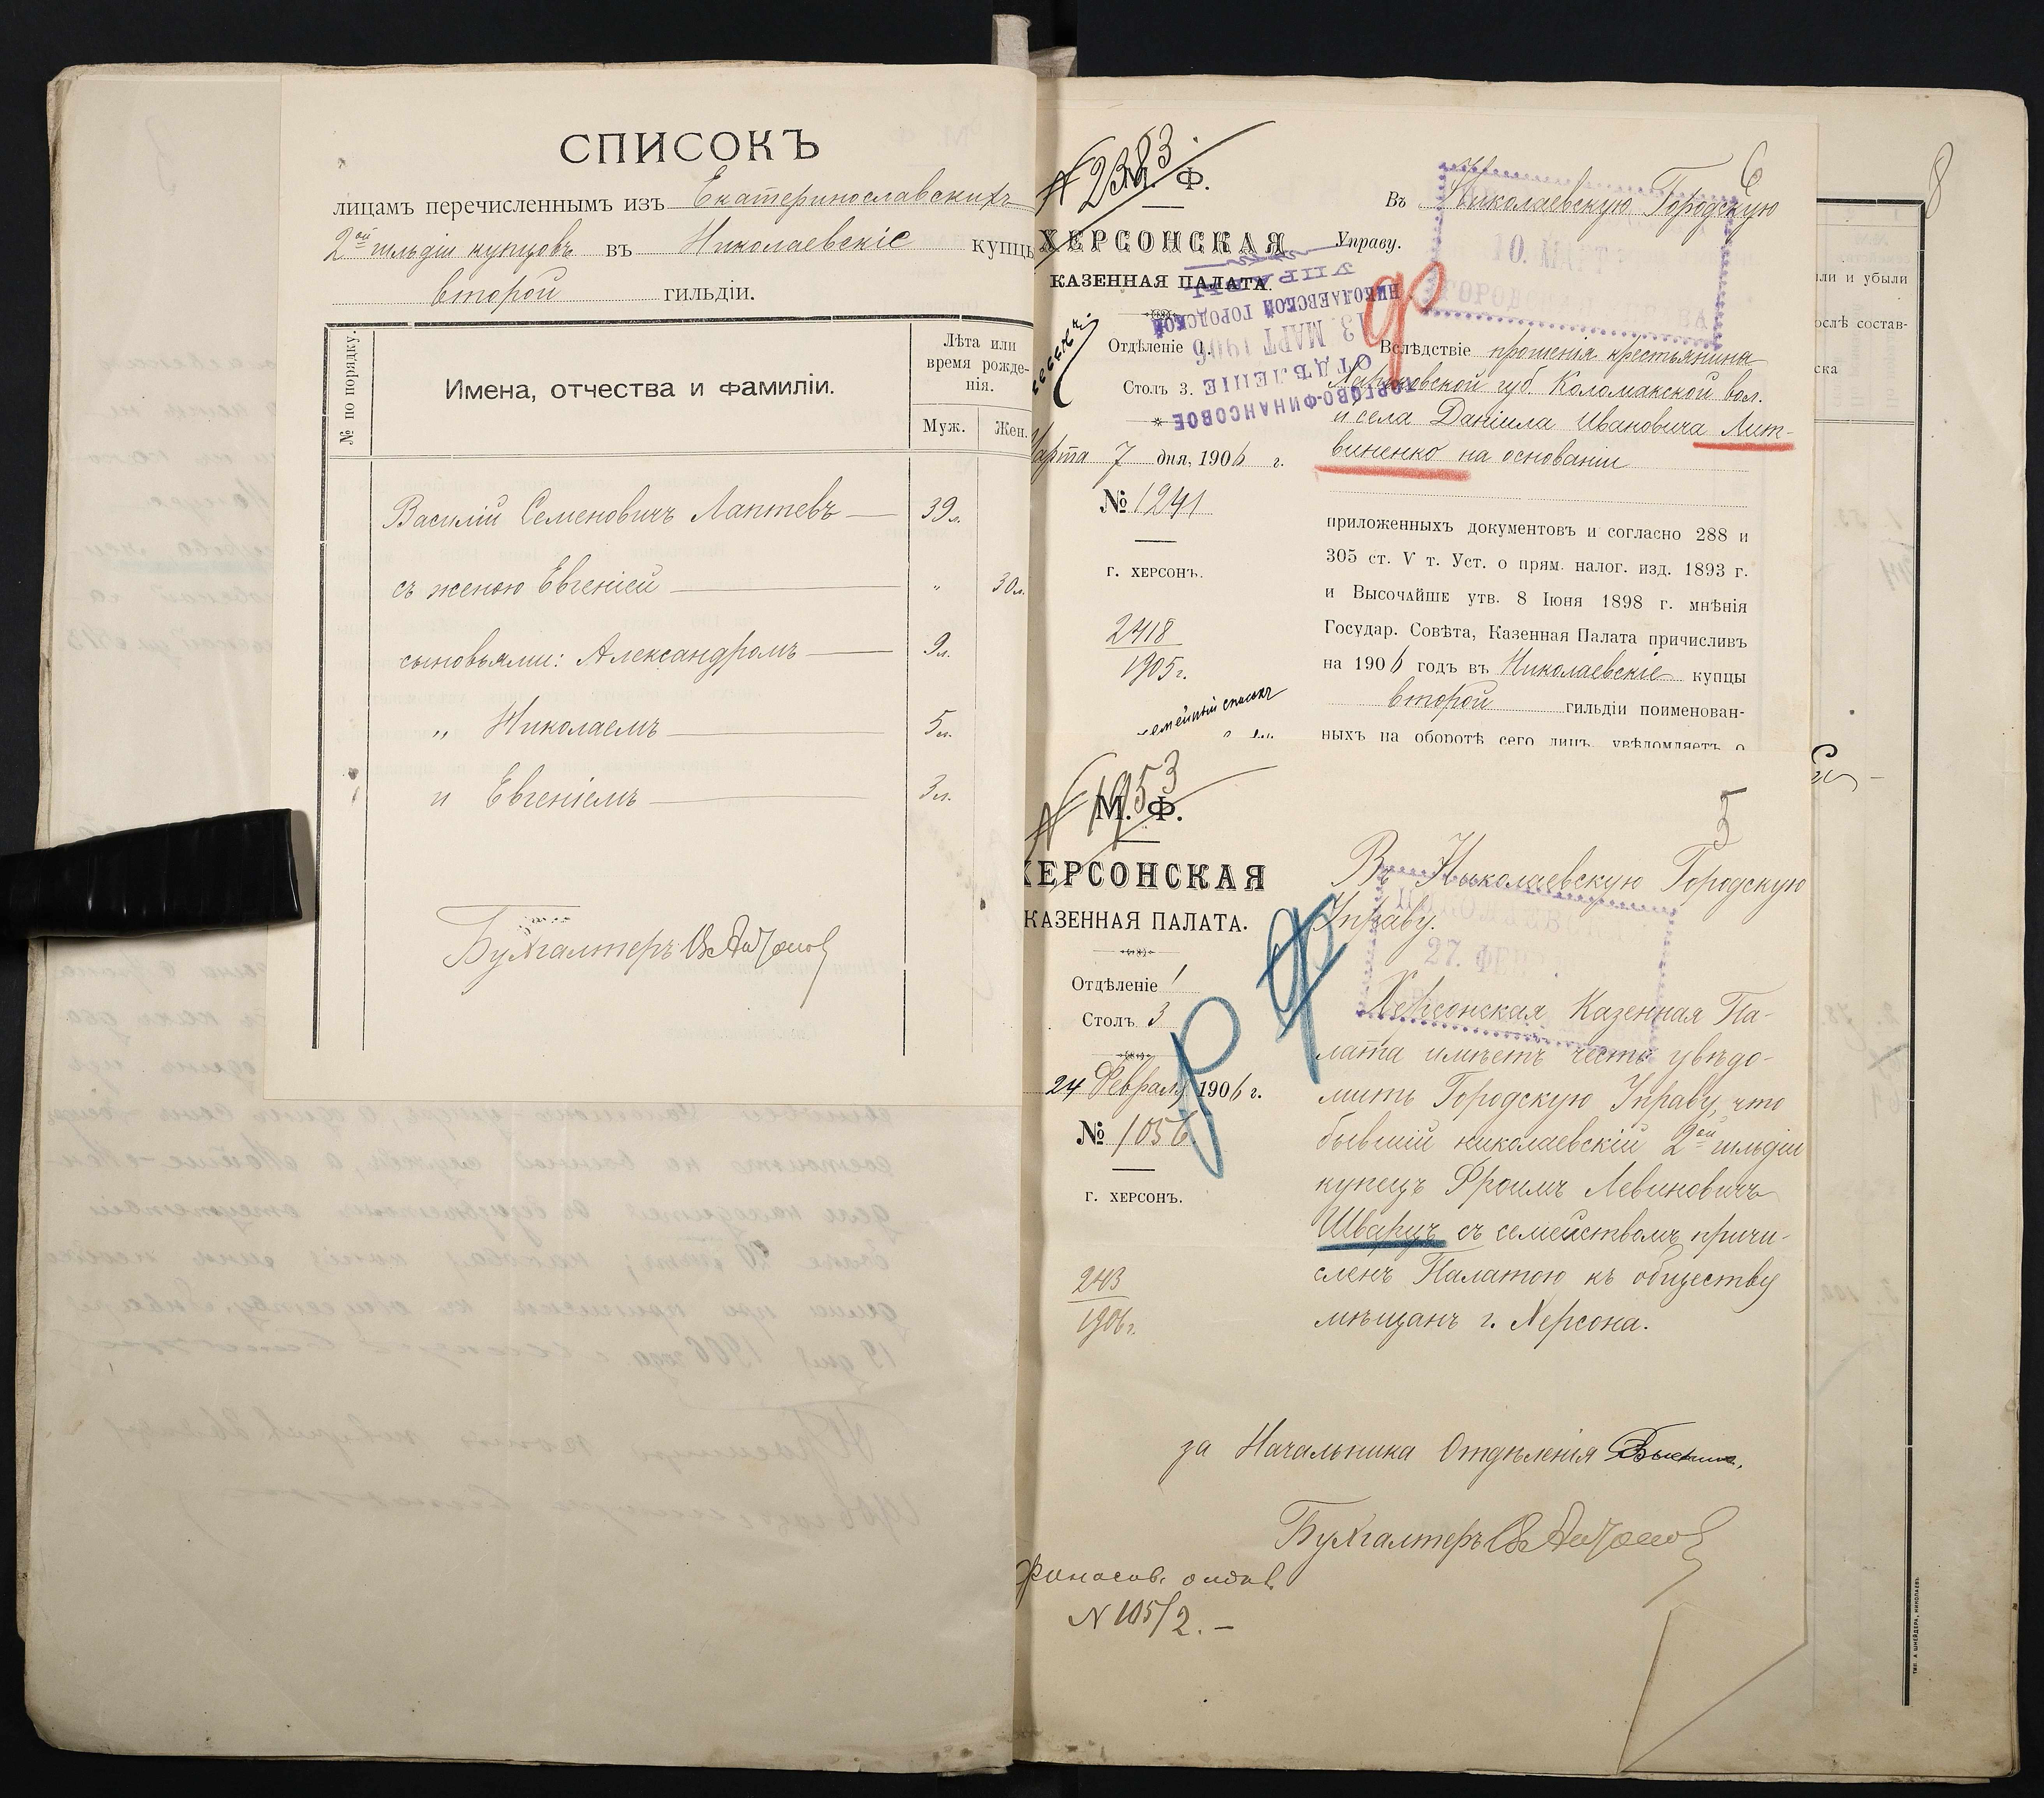 СПИСОКЪ
лицамъ перечисленнымъ изъ Екатеринославскихъ
2ой гильдіи купцовъ въ Николаевскіе купцы
второй гильдіи.
№ по порядку.
Имена, отчества и фамиліи.
Лѣта или
время рожде-
нія.
Муж.
Жен.
Василій Семеновичъ Лаптевъ 39 л.
съ женою Евгеніей " 30 л.
сыновьями: Александромъ 9 л.
" Николаемъ 5 л.
и Евгеніемъ 3 л.
Бухгалтеръ
6
№ 2383.
М. Ф.
ХЕРСОНСКАЯ
КАЗЕННАЯ ПАЛАТА.
Отдѣленіе
Столъ 3.
Марта 7 дня, 1906 г.
№ 1241
г. ХЕРСОНЪ.
2418
1905 г.
семейный списокъ
ТОРГОВО-ФИНАНСОВОЕ
ОТДѢЛЕНІЕ
13. МАРТ 1906
НИКОЛАЕВСКОЙ ГОРОДСКОЙ
УПРАВЫ
Въ Николаевскую Городскую
Управу.
10. МАРТ
Вслѣдствіе прошенія крестьянина
Харьковской губ. Коломакской вол.
и села Даніила Ивановича Лит-
виненко на основаніи
приложенныхъ документовъ и согласно 288 и
305 ст. V т. Уст. о прям. налог. изд. 1893 г.
и Высочайше утв. 8 Іюня 1898 г. мнѣнія
Государ. Совѣта, Казенная Палата причисливъ
на 1906 годъ въ Николаевскіе купцы
второй гильдіи поименован-
ныхъ на оборотѣ сего лицъ, увѣдомляетъ о
5
№ 1953
М. Ф.
ХЕРСОНСКАЯ
КАЗЕННАЯ ПАЛАТА.
Отдѣленіе 1
Столъ 3
24 Февраля 1906 г.
№ 1056
г. ХЕРСОНЪ.
243
1906 г.
Въ Николаевскую Городскую
Управу.
27. ФЕВР
Херсонская Казенная Па-
лата имѣетъ честь увѣдо-
мить Городскую Управу, что
бывшій николаевскій 2ой гильдіи
купецъ Фроимъ Левиновичъ
Шварцъ съ семействомъ причи-
сленъ Палатою къ обществу
мѣщанъ г. Херсона.
за Начальника Отдѣленія
Бухгалтеръ
N 105/2. –
8
или и убыли
послѣ состав-
ска
ТИП. А ШНЕЙДЕРА, НИКОЛАЕВЪ